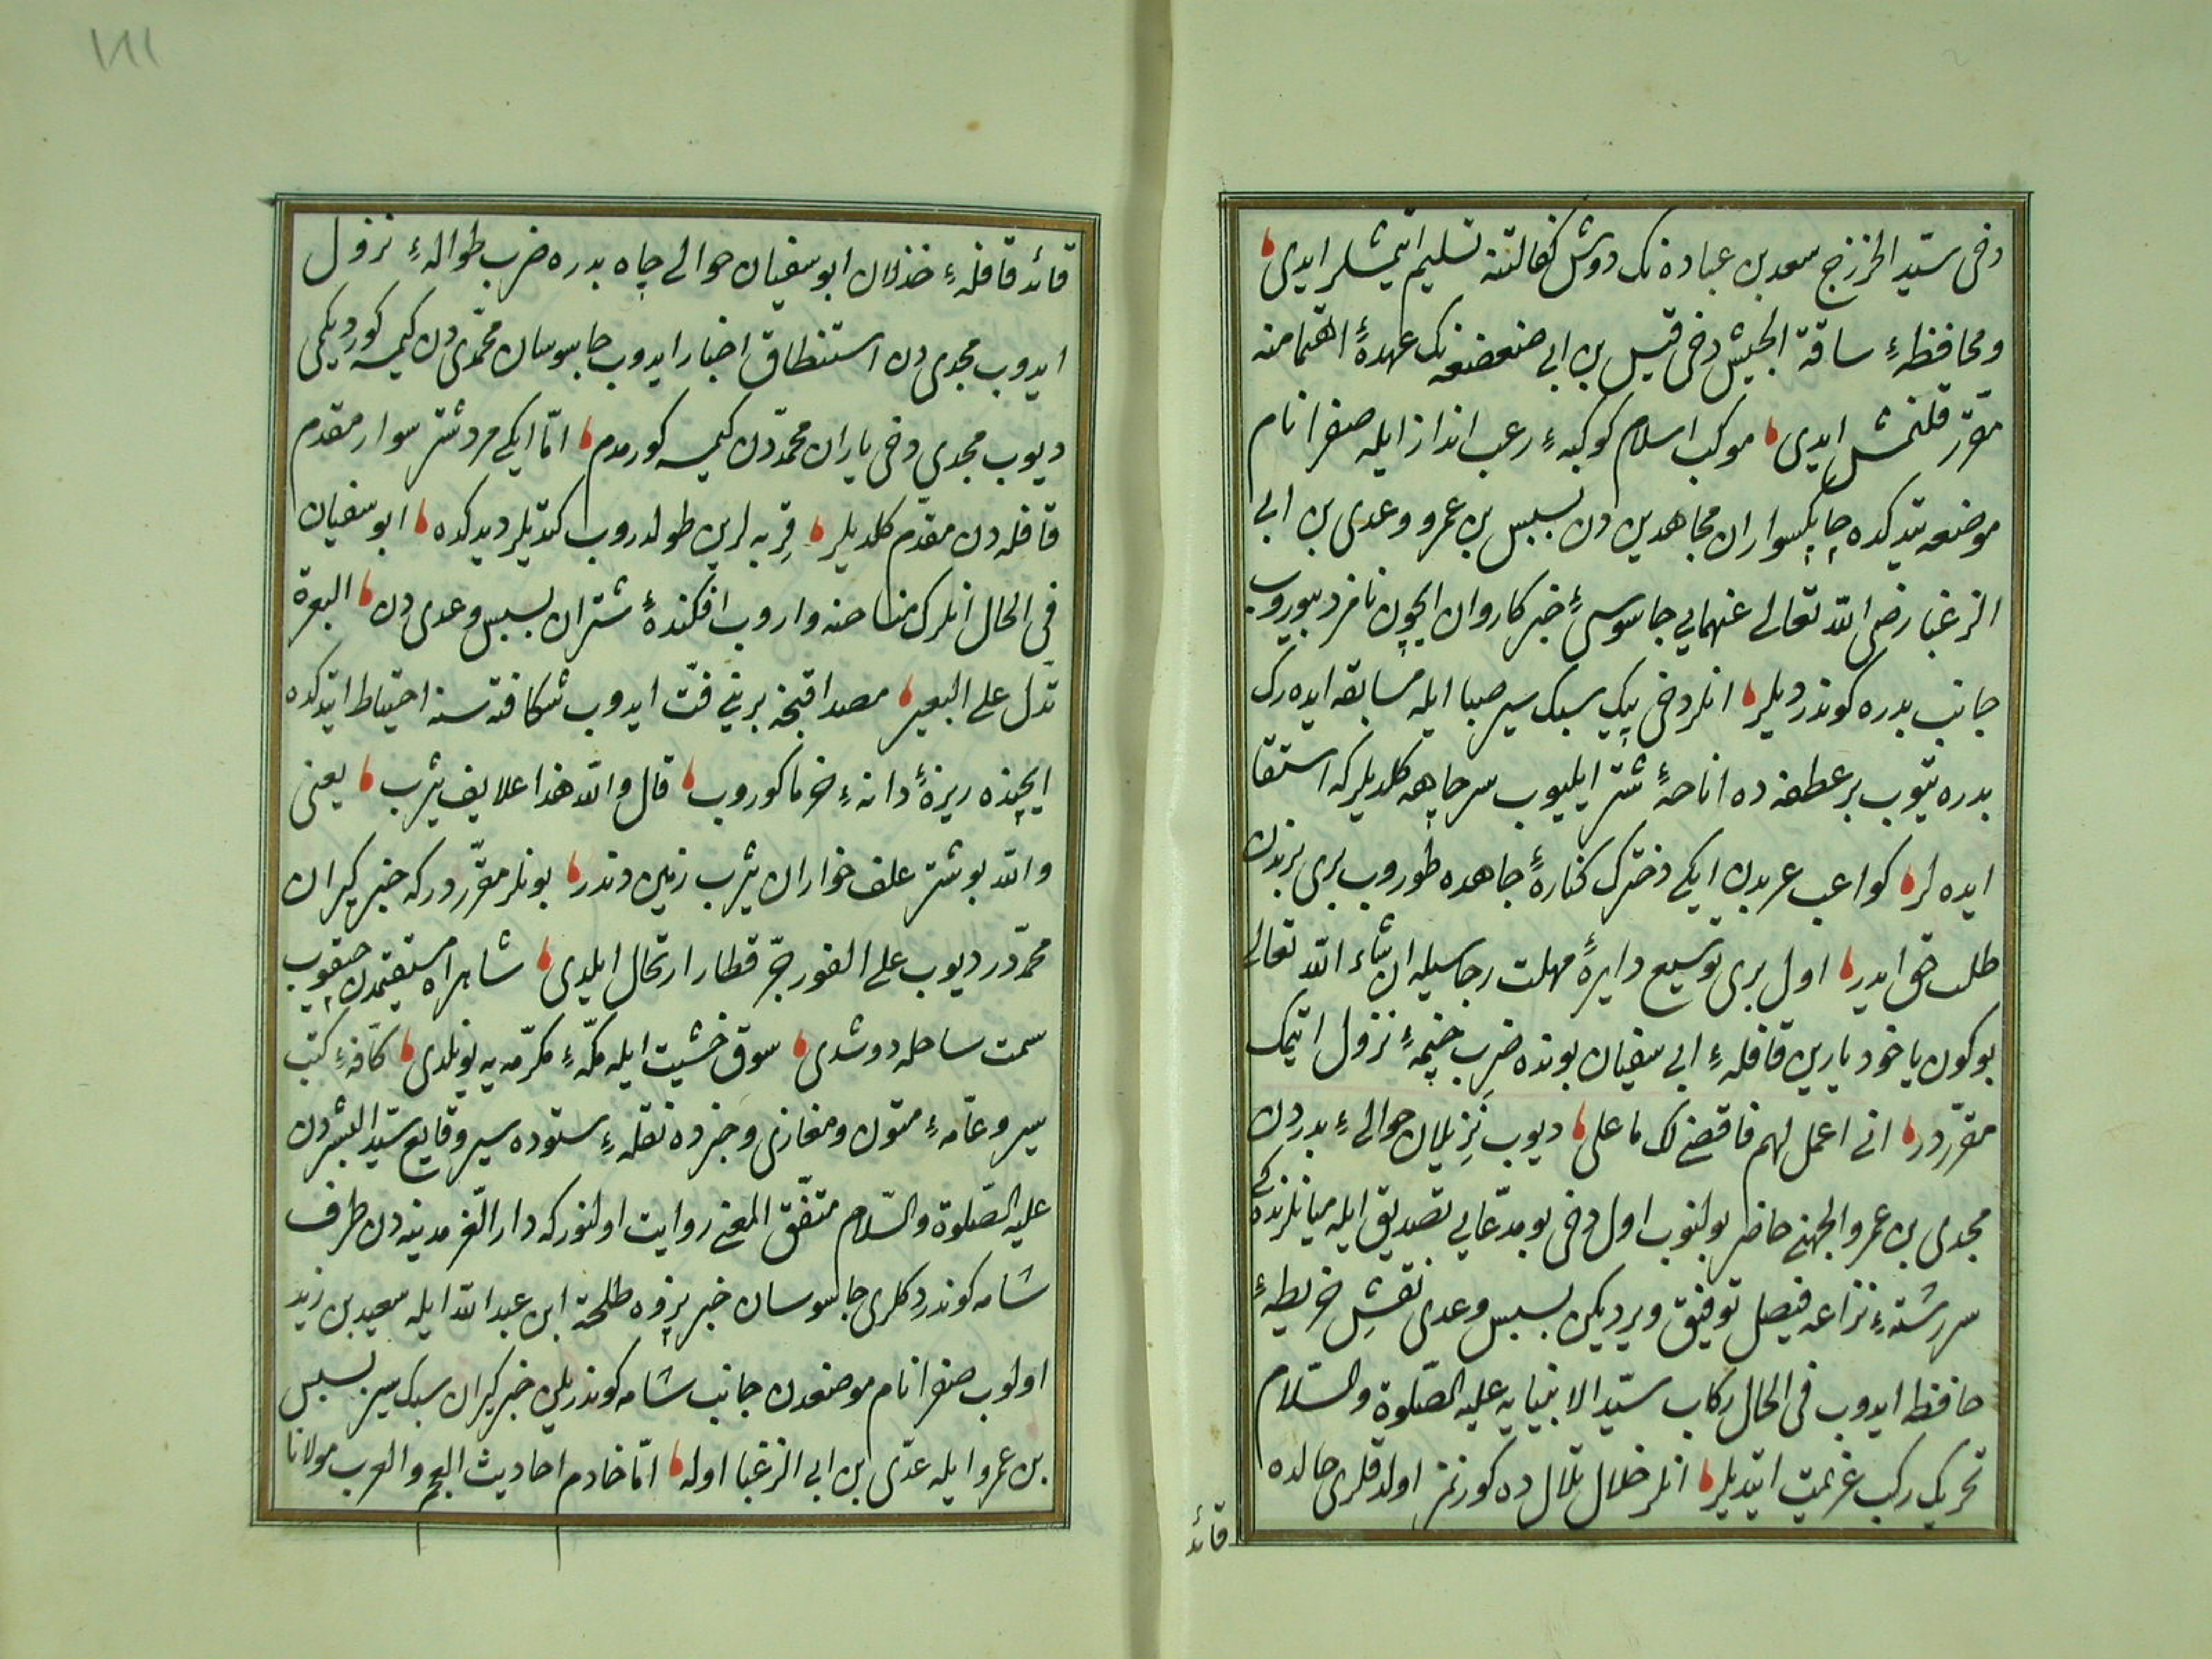 دخی سیّد الخزرج سعد بن عباده نک دوش کفالتنه تسلیم ایتمشلر ایدی
ومحافظهٔ ساقة الجیش دخی قیس بن ابی صعصعه نک عهدهٔ اهتمامنه
مقرّر قلنمش ایدی موکب اسلام کوکبهٔ رعب انداز ایله صفرا نام
موضعه یتدکده چابکسواران مجاهدین دن بسبس بن عمرو وعدی بن ابی
الزغبا رضی الله تعالی عنهمایی جاسوسیٔ خبر کاروان ایچون نامزد بیوروب
جانب بدره کوندردیلر انلر دخی پیک سبک سیر صبا ایله مسابقه ایده رک
بدره یتوب بر عطفه ده اناخهٔ شتر ایلیوب سر چاهه کلدیلر که استقا
ایده لر کواعب عربدن ایکی دخترک کنارهٔ چاهده طوروب بری برندن
طلب حق ایدر اول بری توسیع دایرهٔ مهلت رجاسیله ان شاء الله تعالی
بوکون یاخود یارین قافلهٔ ابی سفیان بونده ضرب خیمهٔ نزول ایتمک
مقرّردر انی اعمل لهم فاقضی لک ما علی دیوب نزیلان حوالیٔ بدردن
مجدی بن عمرو الجهنی حاضر بولنوب اول دخی بو مدّعایی تصدیق ایله میانلرنده کی
سررشتهٔ نزاعه فیصل توفیق ویردیکن بسبس وعدی نقش خریطهٔ
حافظه ایدوب فی الحال رکاب سیّد الانبیایه علیه الصّلوة والسّلام
تحریک رکب عزیمت ایتدیلر انلر خلال تلال ده کورنمز اولدقلری حالده
قائد
قائد قافلهٔ خذلان ابو سفیان حوالی چاه بدره ضرب طوالهٔ نزول
ایدوب مجدی دن استنطاق اخبار ایدوب جاسوسان محمّدی دن کیمسه کوردیکمی
دیوب مجدی دخی یاران محمّددن کیمسه کورمدم امّا ایکی مرد شتر سوار مقدم
قافله دن مقدّم کلدیلر قربه لرین طولدروب کتدیلر دیدکده ابو سفیان
فی الحال انلرک مناخنه واروب افکندهٔ شتران بسبس وعدی دن البعرة
تدل علی البعیر مصداقنجه برینی فتّ ایدوب شکافته سنه احتیاط ایتدکده
ایچنده ریزهٔ دانهٔ خرما کوروب قال والله هذا علایف یثرب یعنی
والله بو شتر علف خواران یثرب زمین دندر بونلر مقرّردر که خبر کیران
محمّددر دیوب علی الفور جرّ قطار ارتحال ایلدی شاهراه مستقیمدن چقوب
سمت ساحله دوشدی سوق خشیت ایله مکّهٔ مکرّمه یه یونلدی کافّهٔ کتب
سیر وعامّهٔ متون ومغازی وخبرده نقلهٔ ستوده سیر وقایع سیّد البشردن
علیه الصّلوة والسّلام متّفق المعنی روایت اولنور که دار العز مدینه دن طرف
شامه کوندردکلری جاسوسان خبر پژوه طلحة ابن عبد الله ایله سعید بن زید
اولوب صفرا نام موضعدن جانب شامه کوندریلن خبر کیران سبک سیر بسبس
بن عمرو ایله عدّی ابن ابی الزغبا اوله امّا خادم احادیث العجم والعرب مولانا